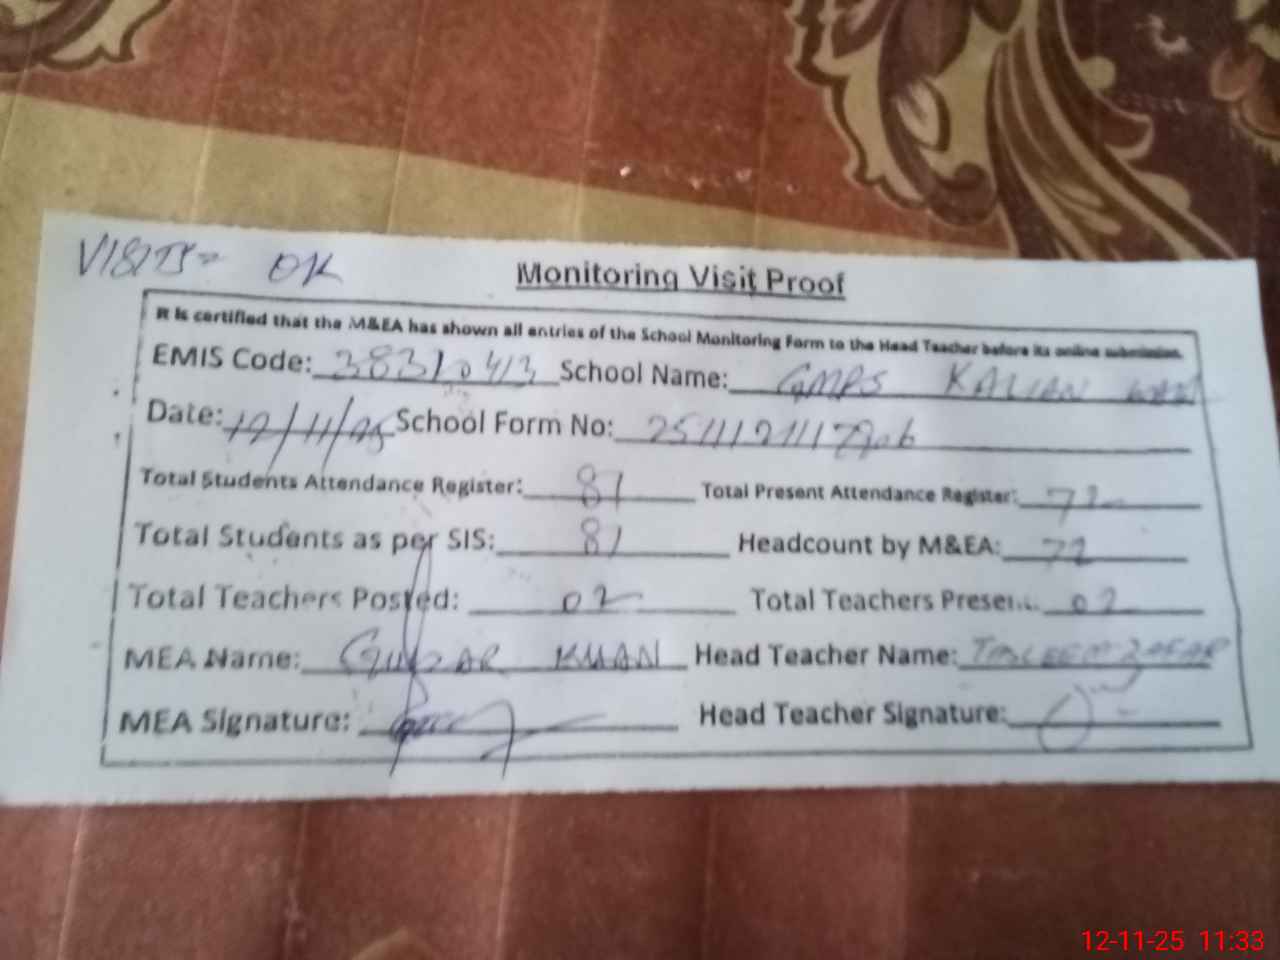 VISITS = OK
Monitoring Visit Proof
It is certified that the M&EA has shown all entries of the School Monitoring Form to the Head Teacher before its online submission.
EMIS Code: 38310413 School Name: GMPS KALIAN
Date: 12/11/25 School Form No:
Total Students Attendance Register: 81 Total Present Attendance Register: 72
Total Students as per SIS: 81 Headcount by M&EA: 72
Total Teachers Posted: 02 Total Teachers Present: 02
MEA Name: GULZAR KHAN Head Teacher Name: TASLEEM ZAFAR
MEA Signature: Head Teacher Signature:
12-11-25 11:33